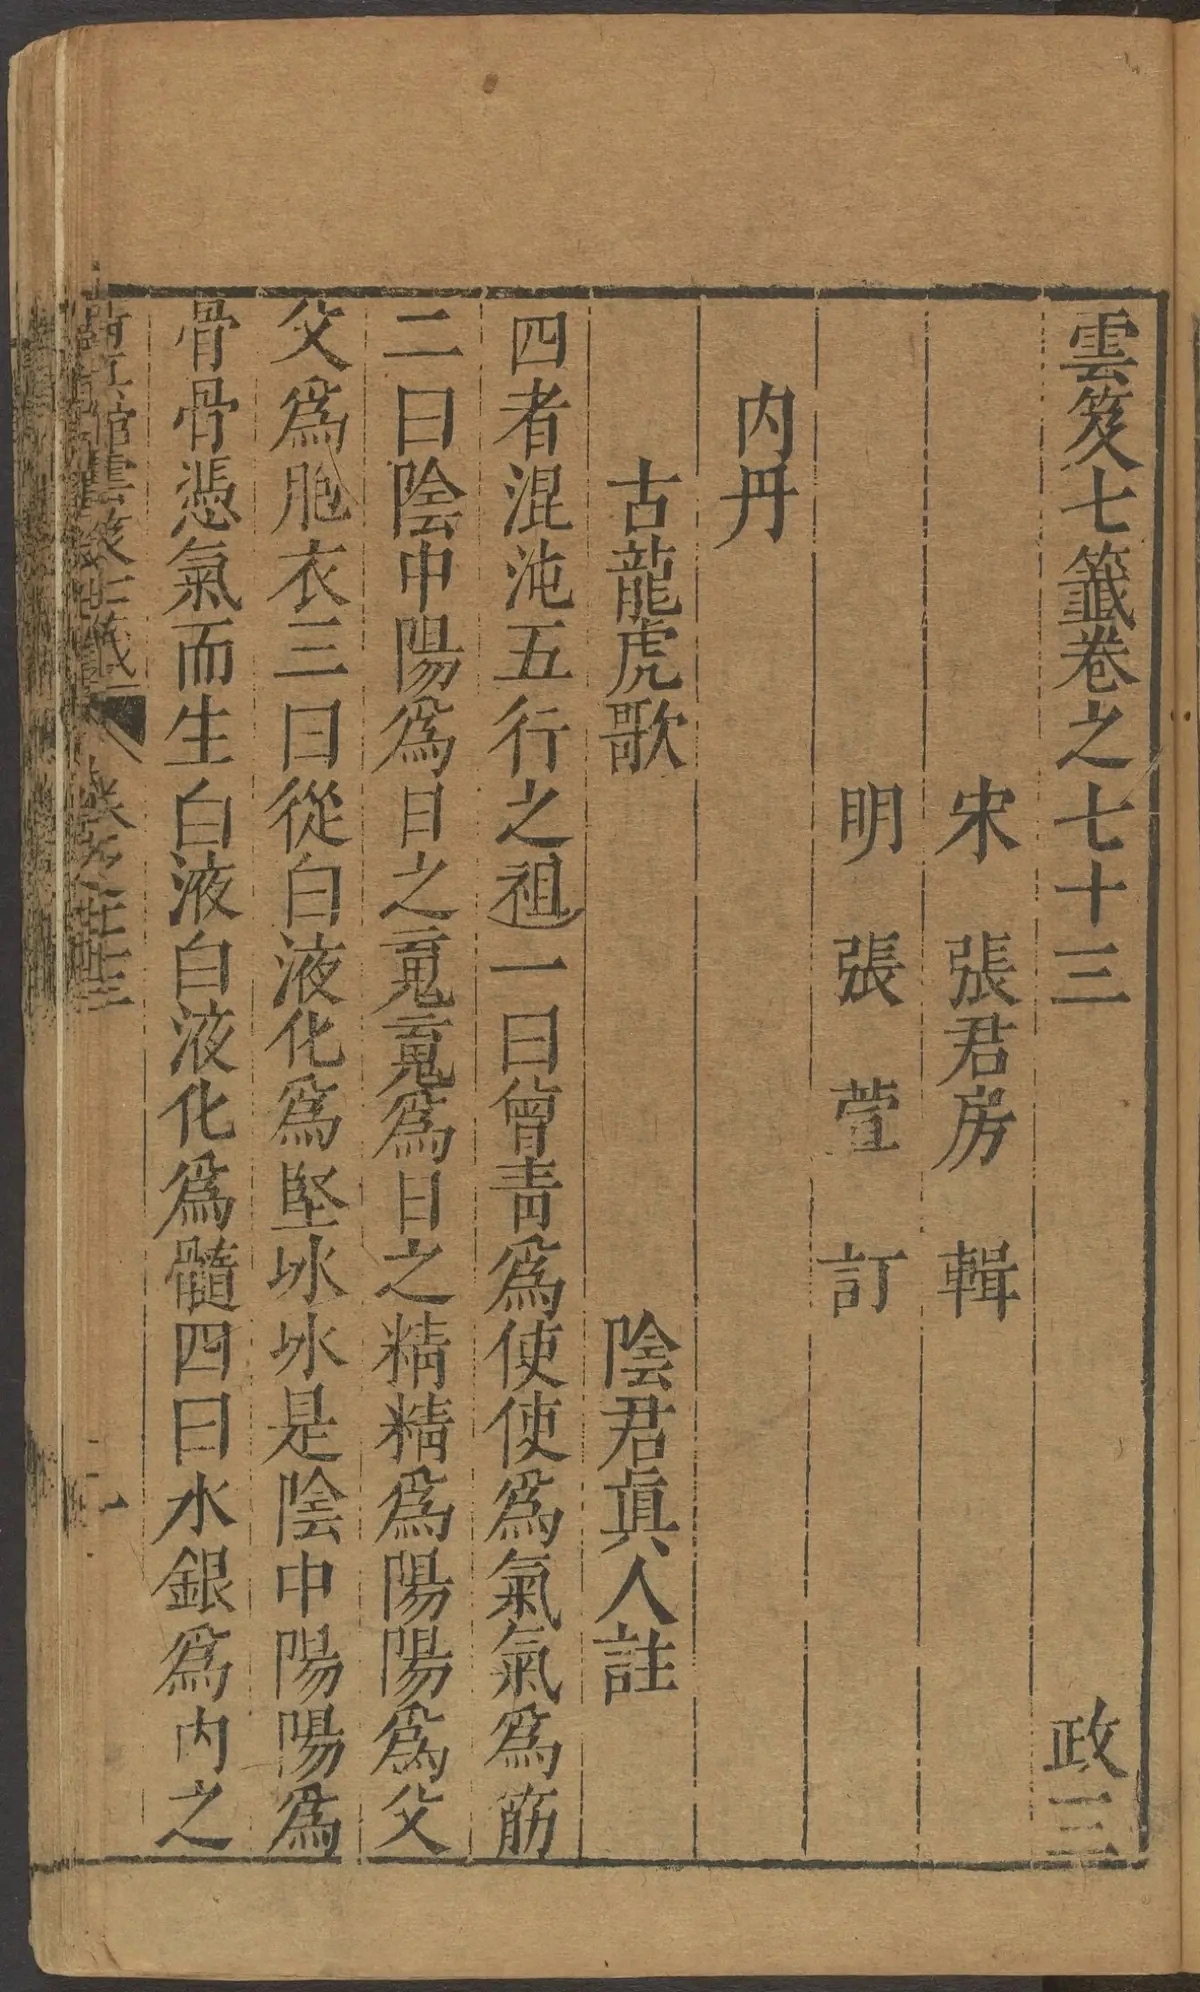 雲笈七籤卷之七十三　政三
宋　張君房　輯
明　張　萱　訂
內丹
古龍虎歌　陰君眞人註
四者混沌五行之祖一曰曾青爲使使爲氣氣爲筋
二曰陰中陽爲日之䰟䰟爲日之精精爲陽陽爲父
父爲胞衣三曰從白液化爲堅冰冰是陰中陽陽爲
骨骨憑氣而生白液白液化爲髓四曰水銀爲內之
館雲笈七籤　卷之七十三　一